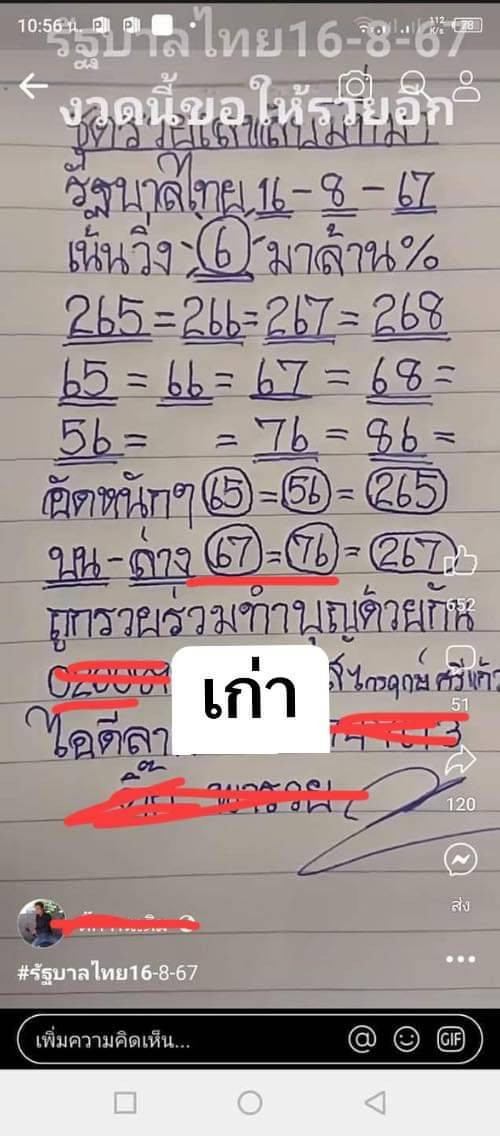 10:56 น.
112 K/s
78
รัฐบาลไทย16-8-67
งวดนี้ขอให้รวยอีก
รัฐบาลไทย 16 - 8 - 67
เน้นวิ่ง 6 มาล้าน%
265 = 266 = 267 = 268
65 = 66 = 67 = 68 =
56 = = 76 = 86 =
อัดหนักๆ 65 = 56 = 265
บน - ล่าง 67 = 76 = 267
ถูกรวยร่วมทำบุญด้วยกัน
เก่า
ไอดีลา
652
51
120
ส่ง
#รัฐบาลไทย16-8-67
เพิ่มความคิดเห็น...
GIF